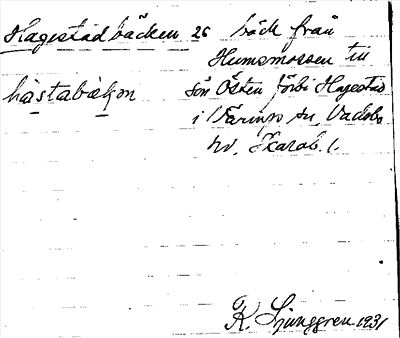 Hagestadbäcken 26 bäck från
Humsmossen till
hàstabàkon sön Östen förbi Hagestad
i Färinps sn, Vadsbo
hd. Skarab. l.
K. Ljunggren 1931